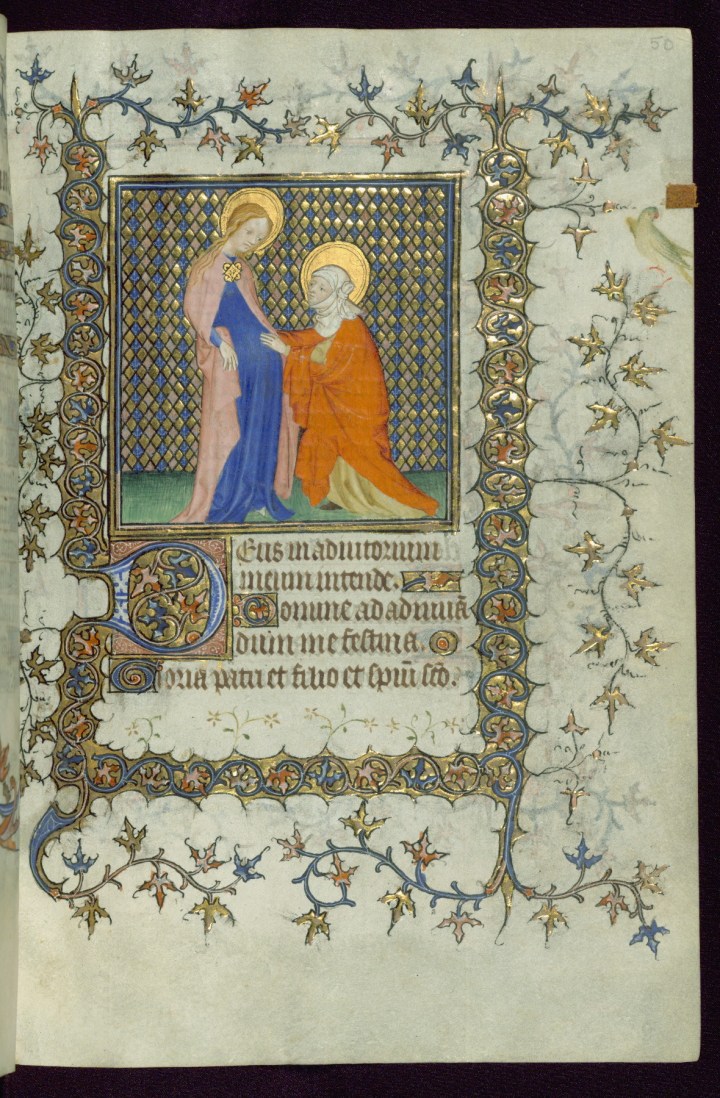 50
Deus in adiutorium
meum intende.
Domine ad adiuuā
dum me festina.
Gloria patri et filio et spiū sc̄o.